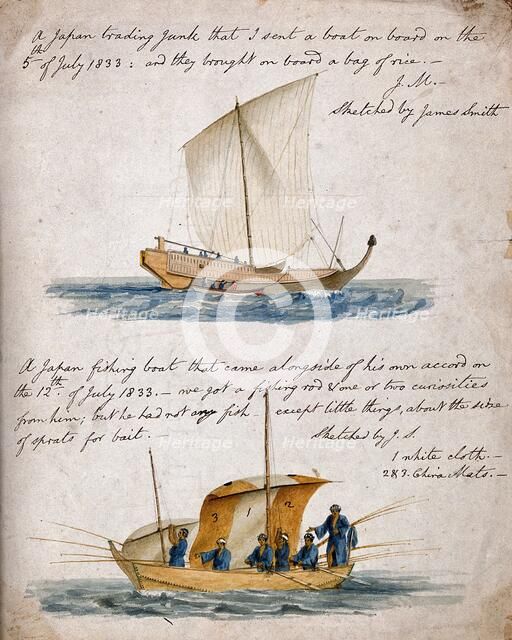 A Japan trading Junk that I sent a boat on board on the
5th of July 1833: and they brought on board a bag of rice. —
J. M. —
Sketched by James Smith
Heritage
Heritage
Heritage
Heritage
A Japan fishing boat that came alongside of his own accord on
the 12th. of July 1833. — we got a fishing rod & one or two curiosities
from him; but he had not any fish — except little things, about the size
of sprats for bait.
Sketched by J. S.
Heritage
Heritage
1 white cloth. —
2 & 3. China Mats. —
3 1 2